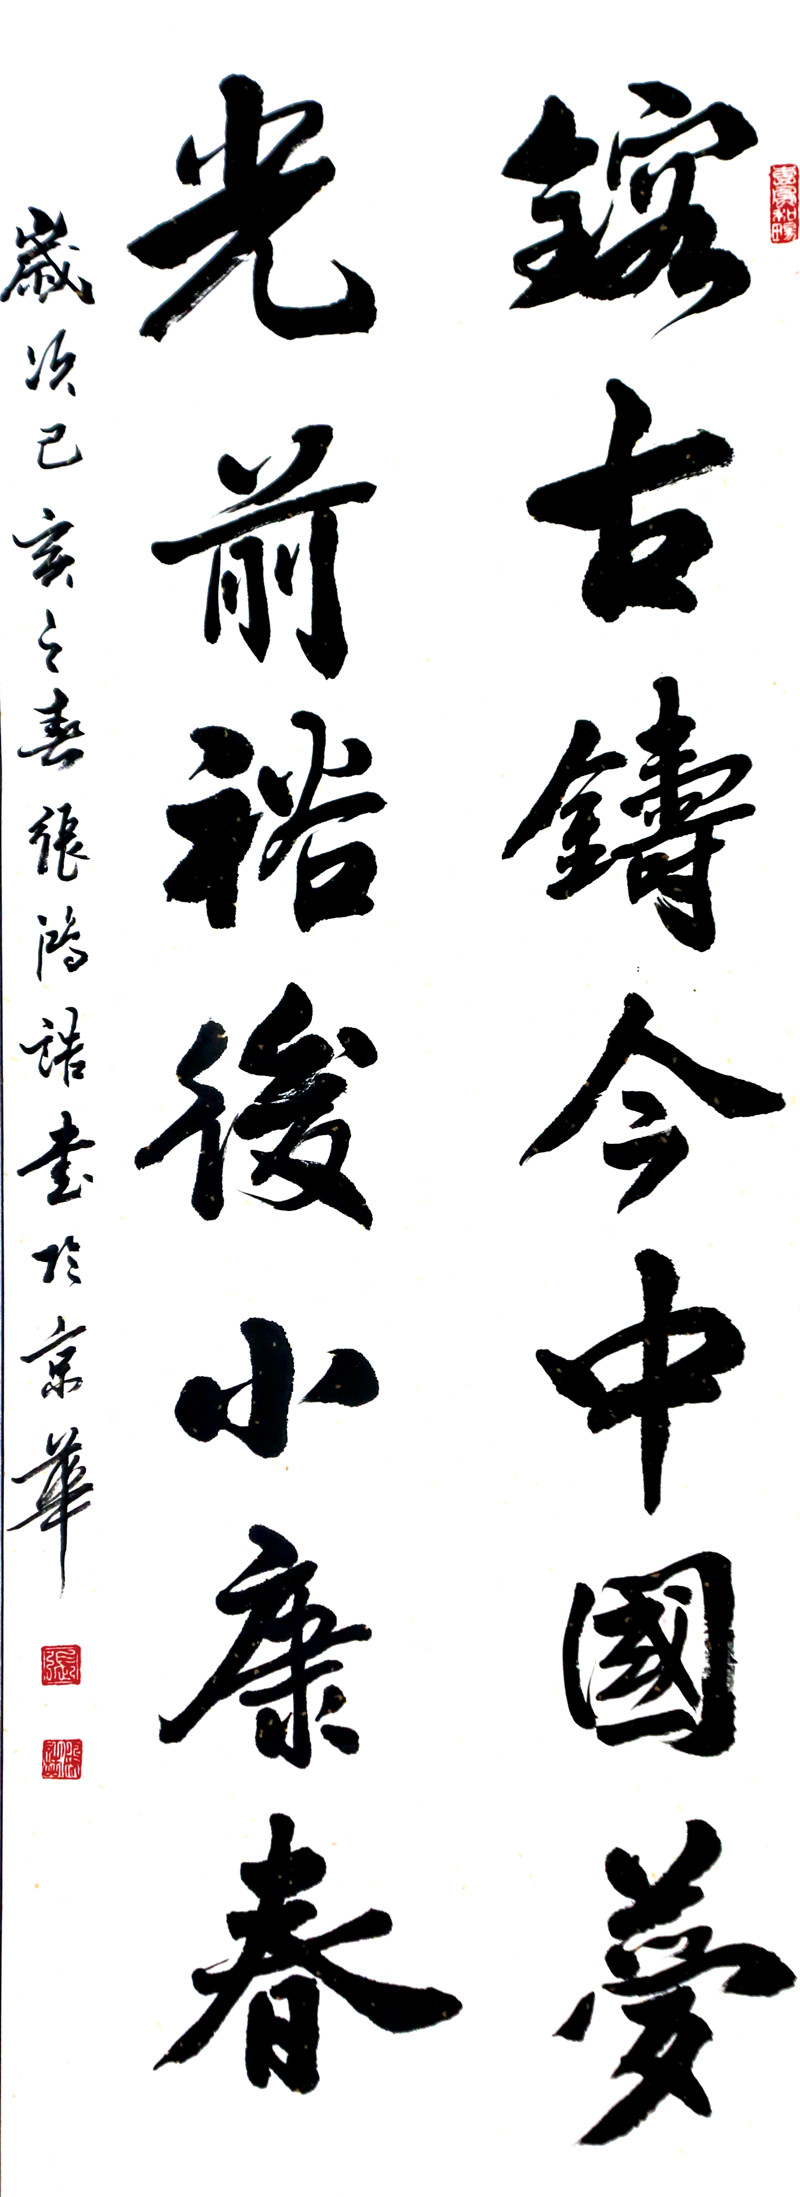 鎔古鑄今中國夢
光前裕後小康春
歲次己亥之春張鴻語書於京華
惠風和暢